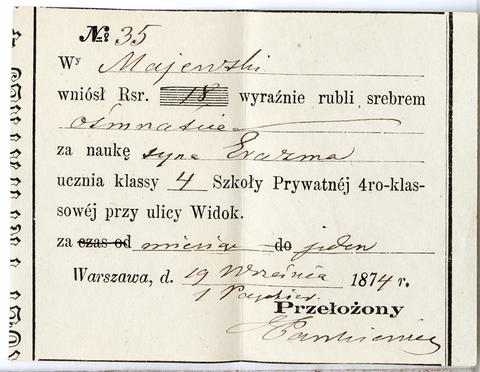 № 35
Wy Majewski
wniósł Rsr. 18 wyraźnie rubli srebrem
ośmnaście
za naukę syna Erazma
ucznia klassy 4 Szkoły Prywatnéj 4ro-klas-
sowéj przy ulicy Widok.
za czas od miesiąc do jeden
Warszawa, d. 19 Września 1874 r.
1
Przełożony